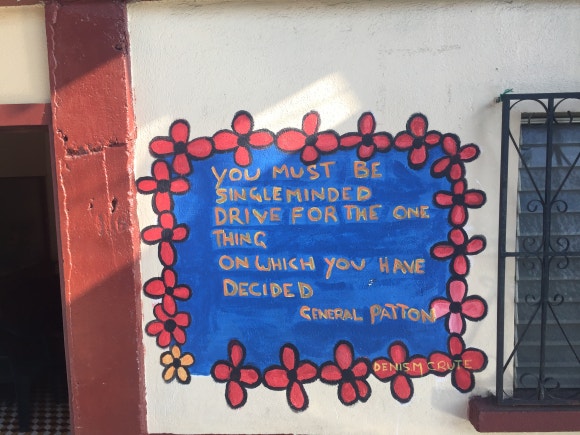 YOU MUST BE
SINGLEMINDED
DRIVE FOR THE ONE
THING
ON WHICH YOU HAVE
DECIDED
GENERAL PATTON
DENIS M CRUTE